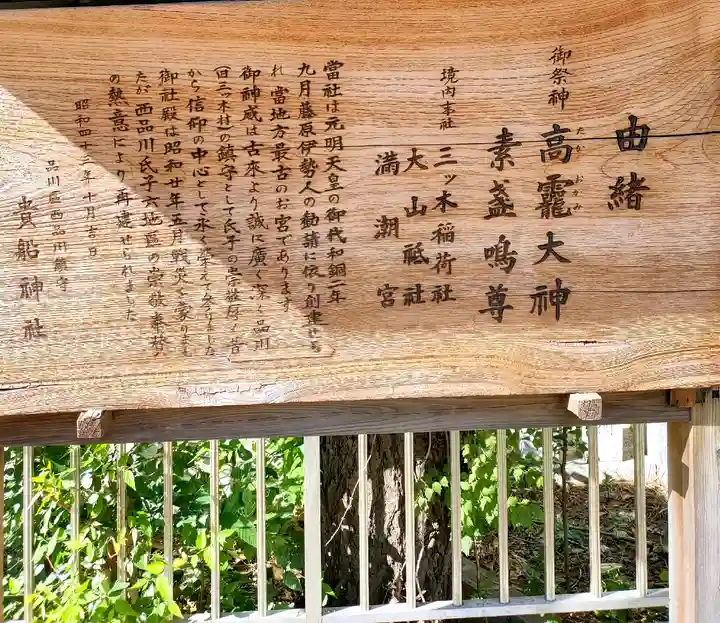 由緒
御祭神 高龗大神
たか おかみ
素盞鳴尊
境内末社 三ツ木稲荷社
大山祗社
満潮宮
當社は元明天皇の御代和銅二年
九月藤原伊勢人の勧請に依り創建せら
れ 當地方最古のお宮であります
御神威は古来より誠に廣く深く品川
(旧三ツ木村)の鎮守として氏子の崇敬厚く昔
から信仰の中心として永く栄えて参りました
御社殿は昭和廿年五月戦災を蒙りまし
たが西品川氏子六地區の崇敬奉賛
の熱意により再建せられました
昭和四十三年十月吉日
品川區西品川鎮守
貴船神社